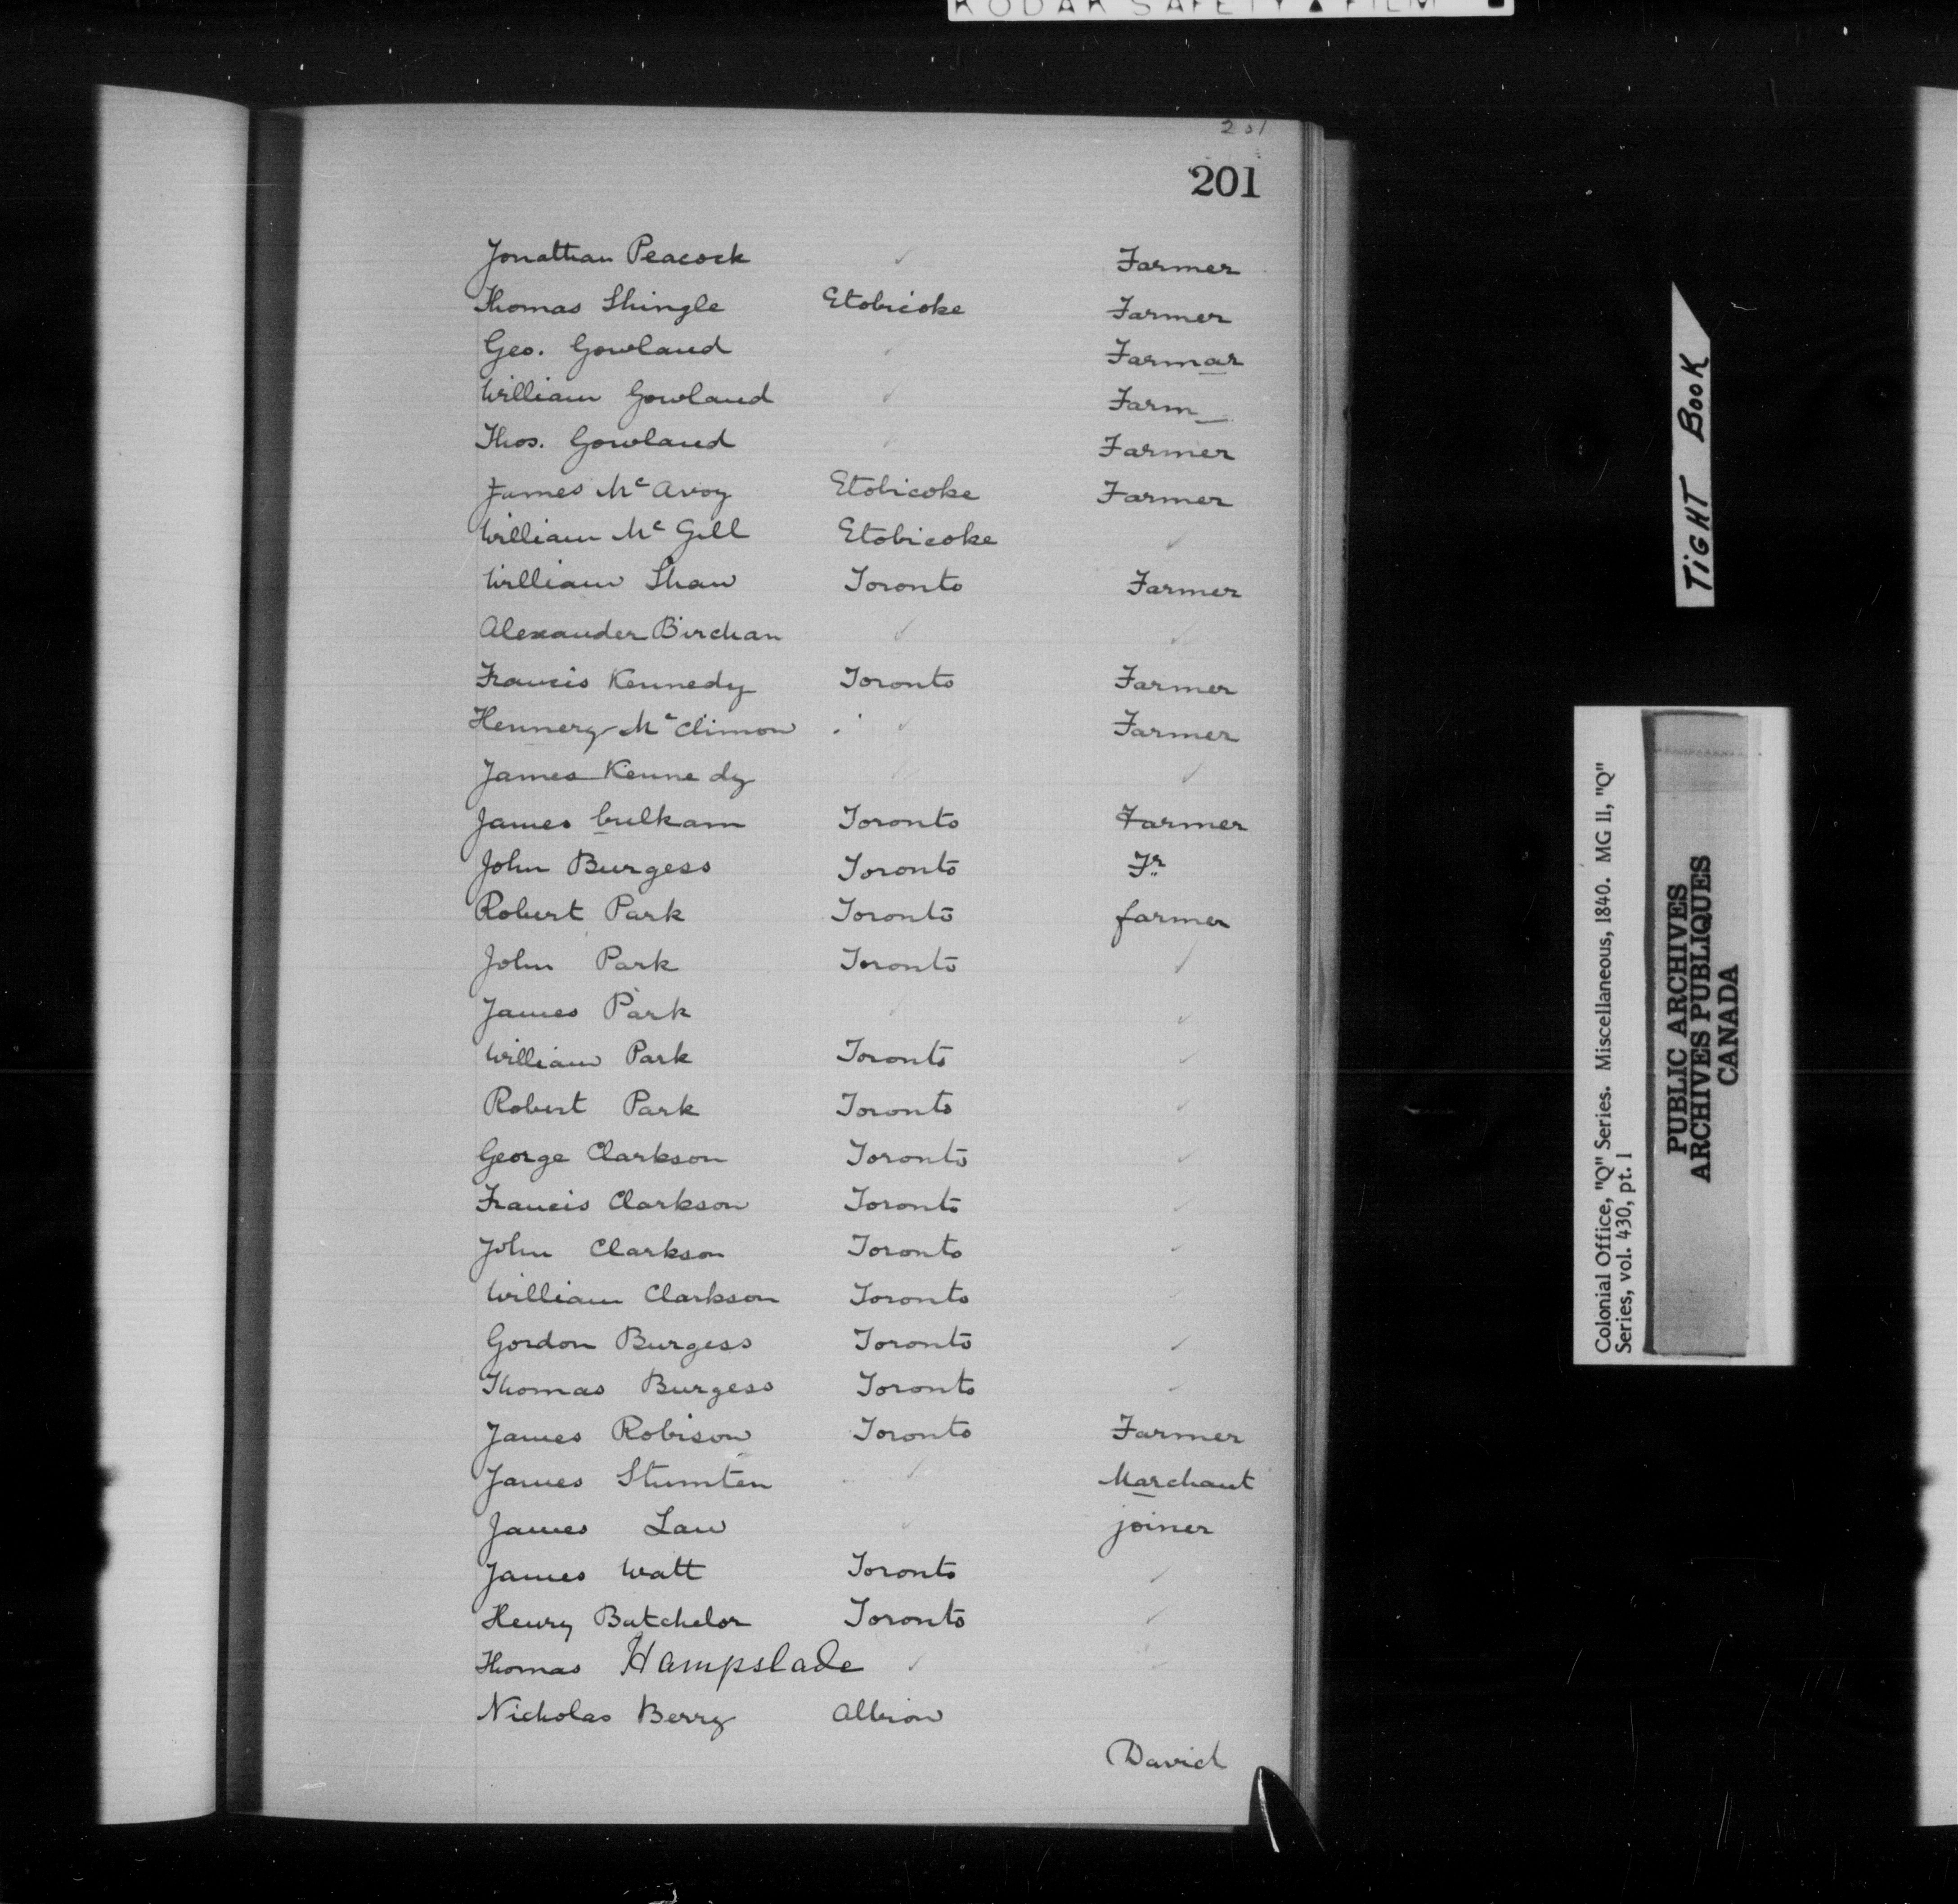 KODAK SAFETY ▲ FILM
201
201
Jonathan Peacock ✓ Farmer
Thomas Shingle Etobicoke Farmer
Geo. Gowland ✓ Farmar
William Gowland ✓ Farm_
Thos. Gowland ✓ Farmer
James McAvoy Etobicoke Farmer
William McGill Etobicoke ✓
William Shaw Toronto Farmer
Alexander Birchan ✓ ✓
Francis Kennedy Toronto Farmer
Hennery McClimon ✓ Farmer
James Kennedy ✓ ✓
James Culkam Toronto Farmer
John Burgess Toronto Fr
Robert Park Toronto farmer
John Park Toronto ✓
James Park ✓ ✓
William Park Toronto ✓
Robert Park Toronto ✓
George Clarkson Toronto ✓
Francis Clarkson Toronto ✓
John Clarkson Toronto ✓
William Clarkson Toronto ✓
Gordon Burgess Toronto ✓
Thomas Burgess Toronto ✓
James Robison Toronto Farmer
James Stumten ✓ Marchant
James Law ✓ joiner
James Watt Toronto ✓
Henry Batchelor Toronto ✓
Thomas Hampslade ✓ ✓
Nicholas Berry Albion
David
TIGHT BOOK
Colonial Office, "Q" Series. Miscellaneous, 1840. MG 11, "Q"
Series, vol. 430, pt. 1
PUBLIC ARCHIVES
ARCHIVES PUBLIQUES
CANADA